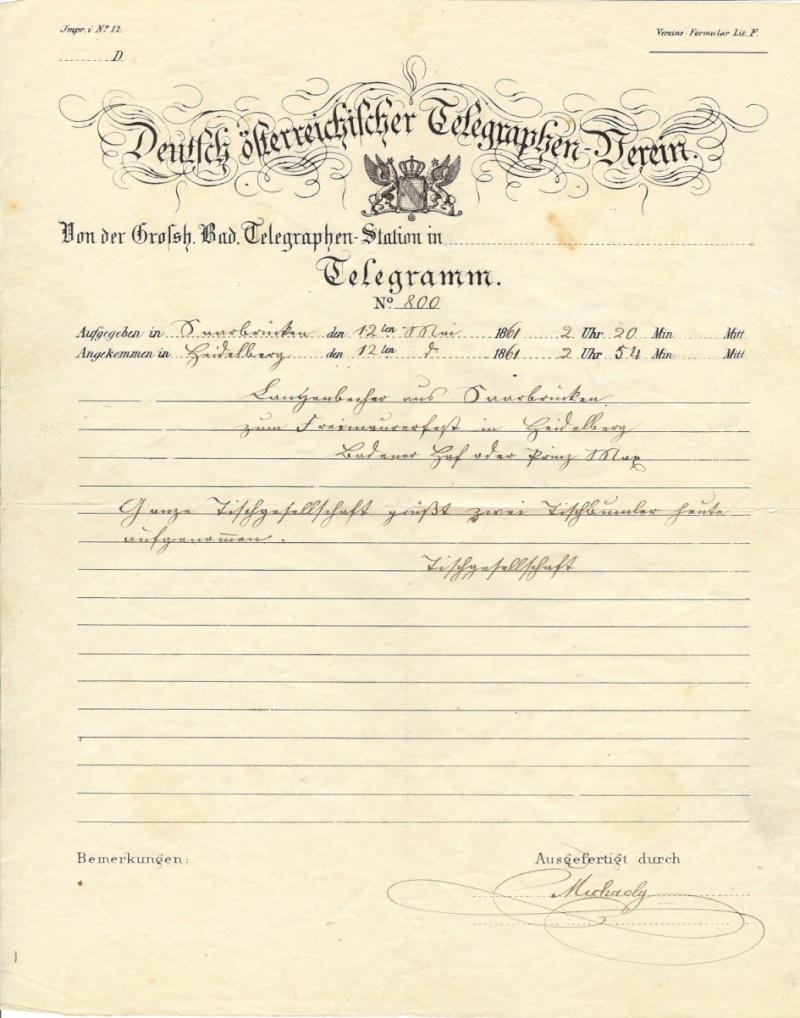 Impr. i Nº 12.
Vereins-Formular Lit. F.
D.
Deutsch österreichischer Telegraphen-Verein.
Von der Grossh. Bad. Telegraphen-Station in
Telegramm.
Nº 800
Aufgegeben in Saarbrücken den 12ten Mai 1861 2 Uhr 20 Min Mitt
Angekommen in Heidelberg den 12ten d 1861 2 Uhr 54 Min Mitt
Lantzenbecher aus Saarbrücken
zum Freimaurerfest in Heidelberg
Badener Hof oder Prinz Max
Ganze Tischgesellschaft grüßt zwei Tischbumler heute
aufgenommen.
Tischgesellschaft
Bemerkungen:
Ausgefertigt durch
Michaely